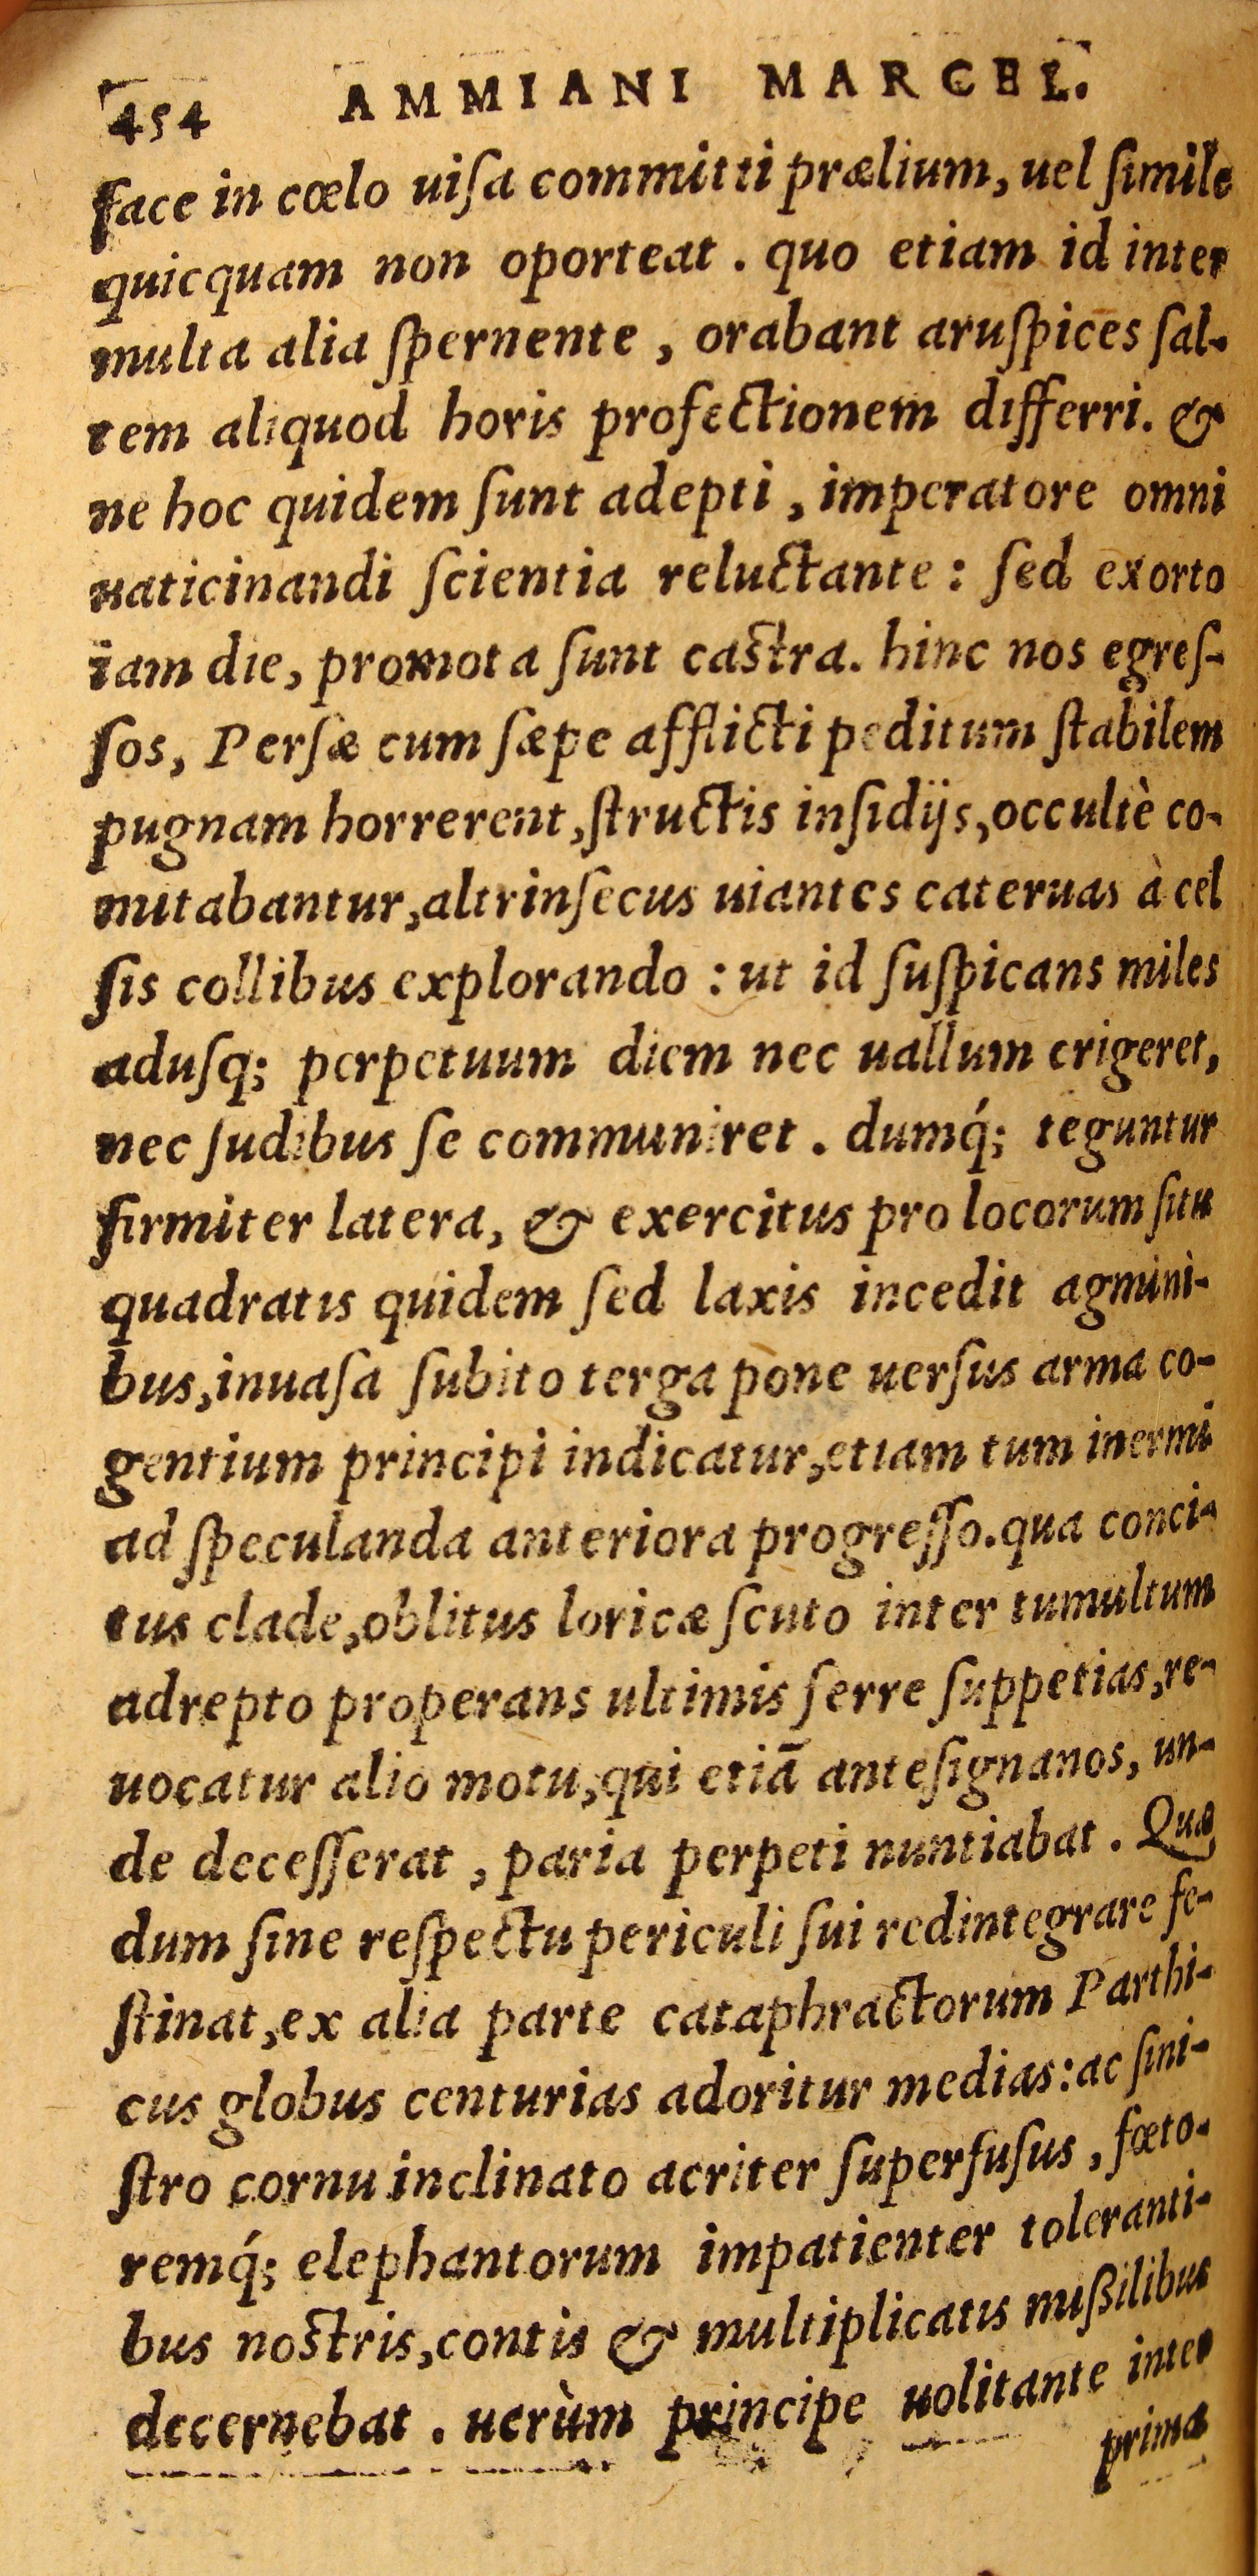 454 AMMIANI MARCEL.
face in cœlo uiſa committi prælium, uel ſimile
quicquam non oporteat . quo etiam id inter
multa alia ſpernente , orabant aruſpices ſal-
tem aliquod horis profectionem differri. &
ne hoc quidem ſunt adepti , imperatore omni
uaticinandi ſcientia reluctante : ſed exorto
iam die, promota ſunt castra. hinc nos egreſ-
ſos, Perſæ cum ſæpe afflicti peditum ſtabilem
pugnam horrerent,ſtructis inſidijs,occultè co-
mitabantur,altrinſecus uiantes cateruas à cel
ſis collibus explorando : ut id ſuſpicans miles
aduſq; perpetuum diem nec uallum erigeret,
nec ſudibus ſe communiret . dumq́; teguntur
firmiter latera, & exercitus pro locorum ſitu
quadratis quidem ſed laxis incedit agmini-
bus,inuaſa ſubito terga pone uerſus arma co-
gentium principi indicatur,etiam tum inermi
ad ſpeculanda anteriora progreſſo.qua conci-
tus clade,oblitus loricæ ſcuto inter tumultum
adrepto properans ultimis ferre ſuppetias,re-
uocatur alio motu,qui etiā anteſignanos, un-
de deceſſerat , paria perpeti nuntiabat . Quæ
dum ſine reſpectu periculi ſui redintegrare fe-
ſtinat,ex alia parte cataphractorum Parthi-
cus globus centurias adoritur medias:ac ſini-
ſtro cornu inclinato acriter ſuperfuſus , fœto-
remq́; elephantorum impatienter toleranti-
bus nostris,contis & multiplicatis mißilibus
decernebat . uerùm principe uolitante inter
prima